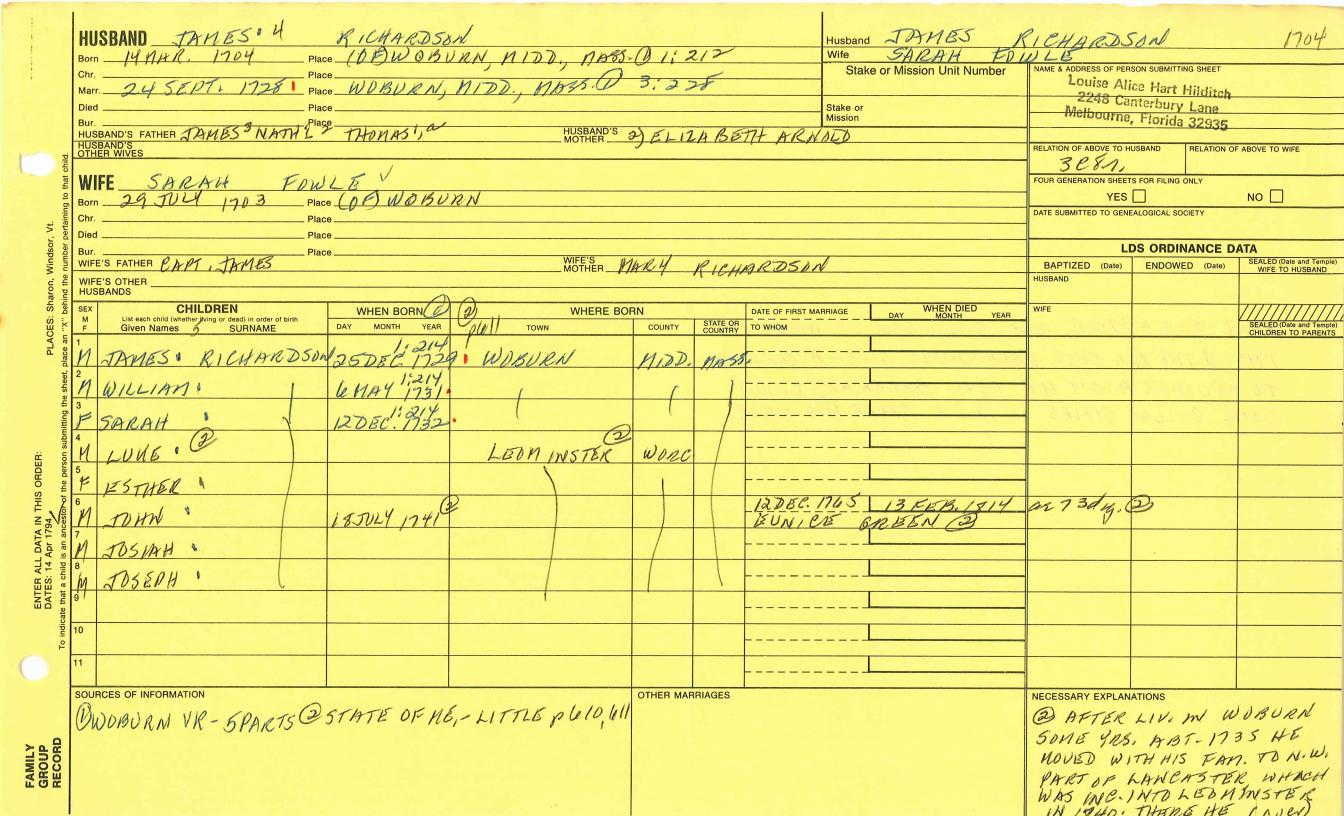 HUSBAND JAMES 4 RICHARDSON
Born 14 MAR. 1704 Place (OF) WOBURN, MIDD., MASS. ① 1:212
Chr. Place
Marr. 24 SEPT. 1728 Place WOBURN, MIDD., MASS. ① 3:228
Died Place
Bur. Place
HUSBAND'S FATHER JAMES 3 NATH'L 2 THOMAS 1, a HUSBAND'S MOTHER 2) ELIZABETH ARNOLD
HUSBAND'S OTHER WIVES
WIFE SARAH FOWLE ✓
Born 29 JULY 1703 Place (OF) WOBURN
Chr. Place
Died Place
Bur. Place
WIFE'S FATHER CAPT. JAMES WIFE'S MOTHER MARY RICHARDSON
WIFE'S OTHER HUSBANDS
Husband JAMES RICHARDSON 1704
Wife SARAH FOWLE
Stake or Mission Unit Number
Stake or Mission
NAME & ADDRESS OF PERSON SUBMITTING SHEET
Louise Alice Hart Hilditch
2248 Canterbury Lane
Melbourne, Florida 32935
RELATION OF ABOVE TO HUSBAND RELATION OF ABOVE TO WIFE
FOUR GENERATION SHEETS FOR FILING ONLY
YES NO
DATE SUBMITTED TO GENEALOGICAL SOCIETY
LDS ORDINANCE DATA
BAPTIZED (Date) ENDOWED (Date) SEALED (Date and Temple) WIFE TO HUSBAND
HUSBAND
WIFE
SEALED (Date and Temple) CHILDREN TO PARENTS
SEX M F
CHILDREN
List each child (whether living or dead) in order of birth
Given Names 5 SURNAME
WHEN BORN ①
DAY MONTH YEAR
② p611
WHERE BORN
TOWN COUNTY STATE OR COUNTRY
DATE OF FIRST MARRIAGE
TO WHOM
WHEN DIED
DAY MONTH YEAR
1 M JAMES RICHARDSON 25 DEC. 1729 1:214 WOBURN MIDD. MASS.
2 M WILLIAM 6 MAY 1731 1:214
3 F SARAH 12 DEC. 1732 1:214
4 M LUKE ② LEOMINSTER ② WORC
5 F ESTHER
6 M JOHN 18 JULY 1741 ② 12 DEC. 1765 13 FEB. 1814 ae 73 dy. ②
EUNICE GREEN ②
7 M JOSIAH
8 M JOSEPH
9
10
11
SOURCES OF INFORMATION
① WOBURN VR - 5 PARTS ② STATE OF ME, - LITTLE p 610, 611
OTHER MARRIAGES
NECESSARY EXPLANATIONS
② AFTER LIV. IN WOBURN
SOME YRS. ABT. 1735 HE
MOVED WITH HIS FAM. TO N.W.
PART OF LANCASTER WHICH
WAS INC. INTO LEOMINSTER
IN 1740: THERE HE
PLACES: Sharon, Windsor, Vt.
To indicate that a child is an ancestor of the person submitting the sheet, place an "X" behind the number pertaining to that child.
ENTER ALL DATA IN THIS ORDER:
DATES: 14 Apr 1794
FAMILY GROUP RECORD